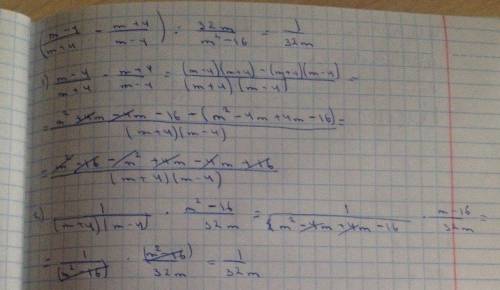 (m-4/m+4 - m+4/m-4) : 32m/m²-16 = 1/32m
1) m-4/m+4 - m+4/m-4 = (m-4)(m+4)-(m+4)(m-4)/(m+4)(m-4) =
= m²+4m-4m-16-(m²-4m+4m-16)/(m+4)(m-4) =
= m²-16-m²+4m-4m+16/(m+4)(m-4)
2) 1/(m+4)(m-4) · m²-16/32m = 1/(m²-4m+4m-16 · m-16/32m =
= 1/(m²-16) · (m²-16)/32m = 1/32m